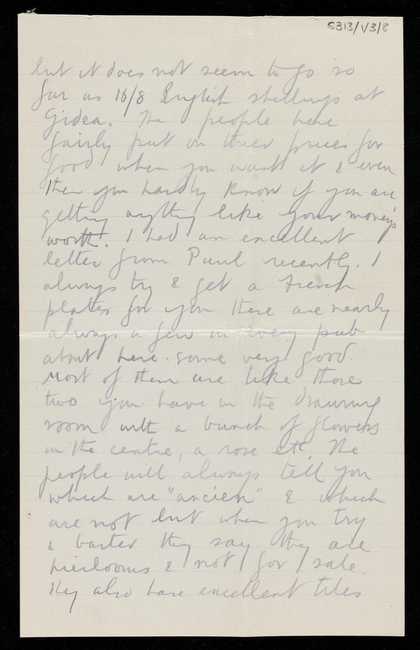 S313/1/3/8
but it does not seem to go so
far as 16/8 English shillings at
Gidea. The people here
fairly put on their prices for
food when you want it & even
then you hardly know if you are
getting anything like your money's
worth! I had an excellent
letter from Paul recently. I
always try & get a French
plates for you there are nearly
always a few in every pub
about here some very good.
Most of them are like those
two you have in the drawing
room with a bunch of flowers
in the centre, a rose etc. The
people will always tell you
which are "ancien" & which
are not but when you try
& barter they say they are
heirlooms & not for sale.
They also have excellent tiles